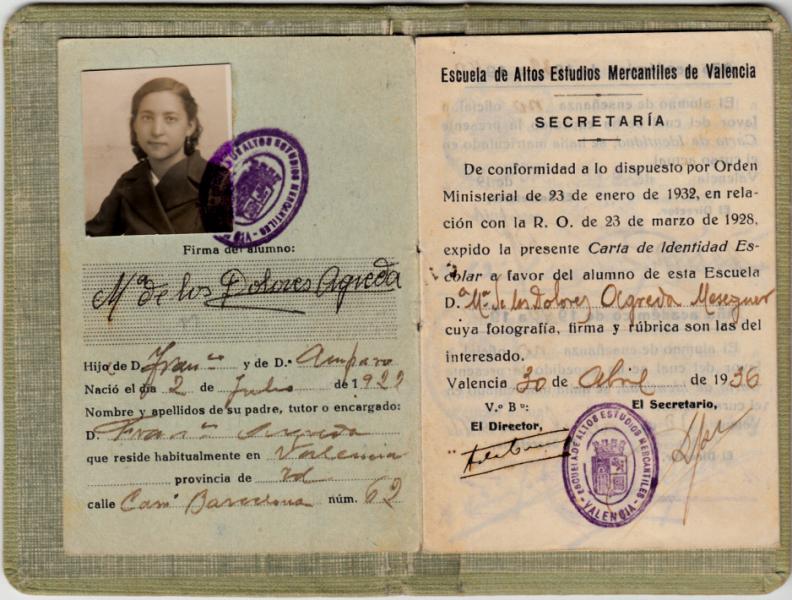 ESCUELA DE ALTOS ESTUDIOS MERCANTILES
Firma del alumno:
Mª de los Dolores Agreda
Hijo de D. Franco y de D.ª Amparo
Nació el día 2 de Julio de 1922
Nombre y apellidos de su padre, tutor o encargado:
D. Franco Agreda
que reside habitualmente en Valencia
provincia de id
calle Camº Barcelona núm. 62
Escuela de Altos Estudios Mercantiles de Valencia
SECRETARÍA
De conformidad a lo dispuesto por Orden
Ministerial de 23 de enero de 1932, en rela-
ción con la R. O. de 23 de marzo de 1928,
expido la presente Carta de Identidad Es-
colar a favor del alumno de esta Escuela
D.ª Mª de los Dolores Agreda Meseguer
cuya fotografía, firma y rúbrica son las del
interesado.
Valencia 30 de Abril de 1936
V.º B.º:
El Secretario,
El Director,
ESCUELA DE ALTOS ESTUDIOS MERCANTILES
-VALENCIA-